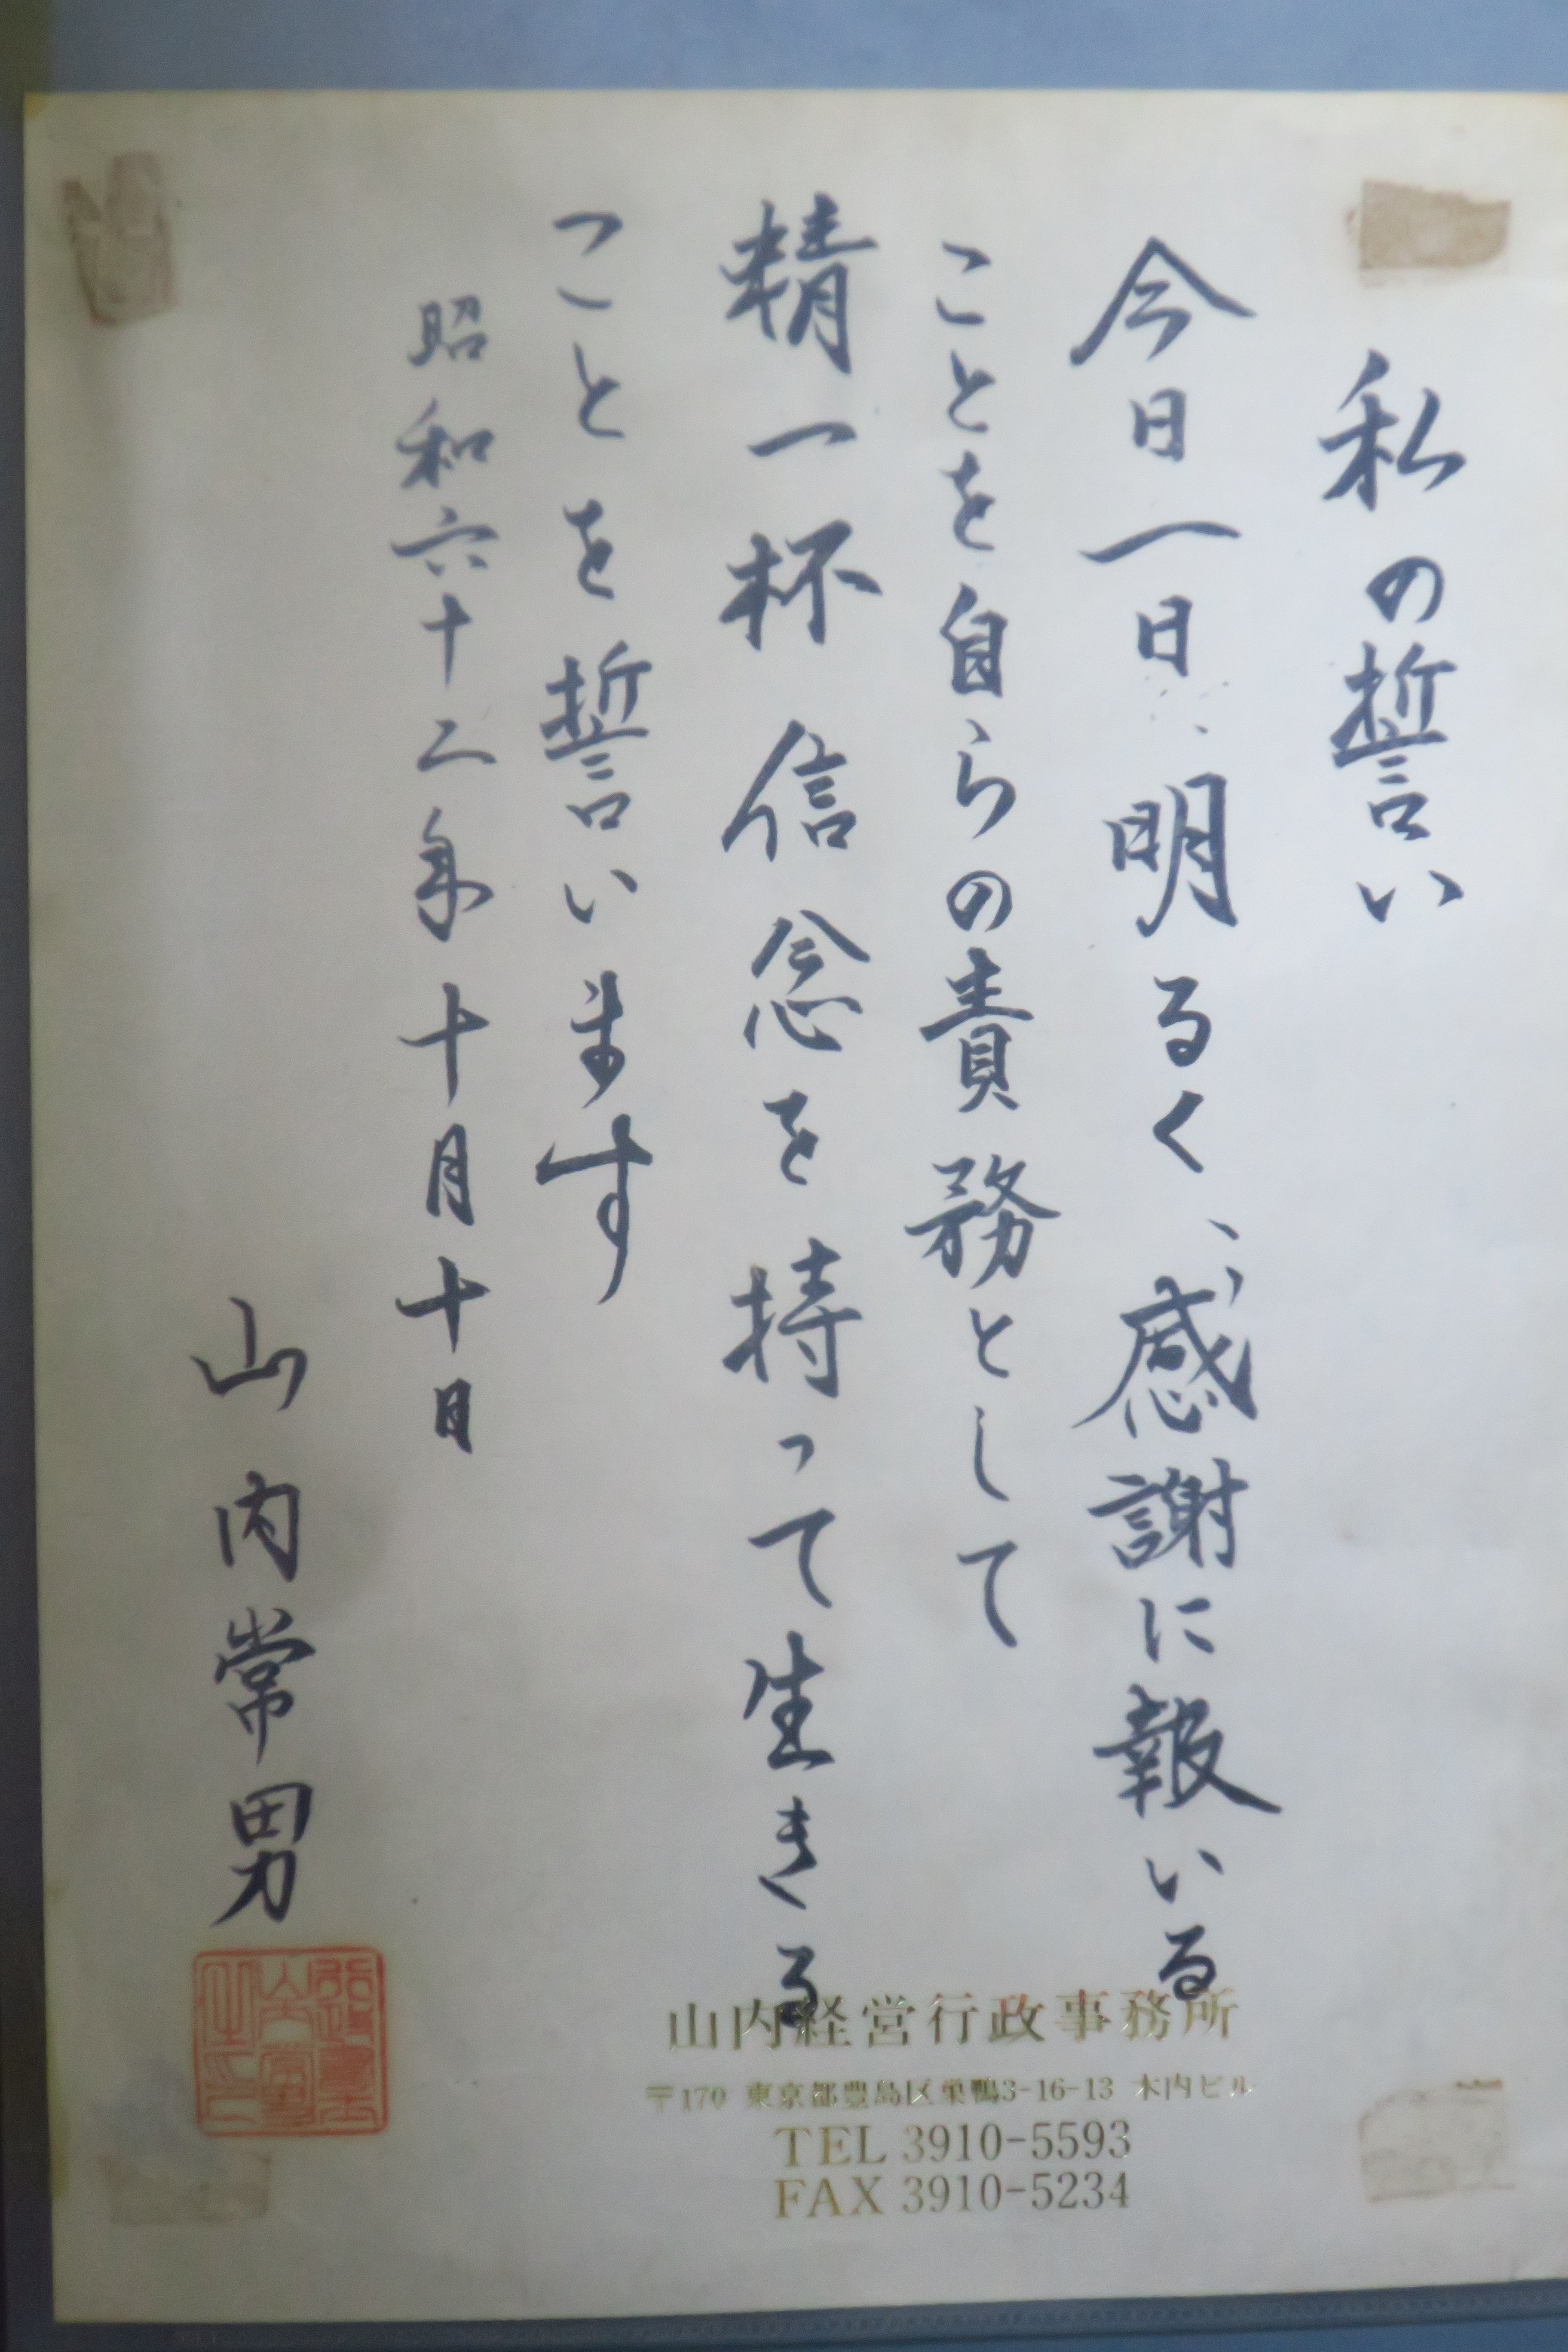 私の誓い
今日一日、明るく、感謝に報いる
ことを自らの責務として
精一杯信念を持って生きる
ことを誓います
昭和六十二年十月十日
山内常男
山内経営行政事務所
〒170 東京都豊島区巣鴨3-16-13 木内ビル
TEL 3910-5593
FAX 3910-5234